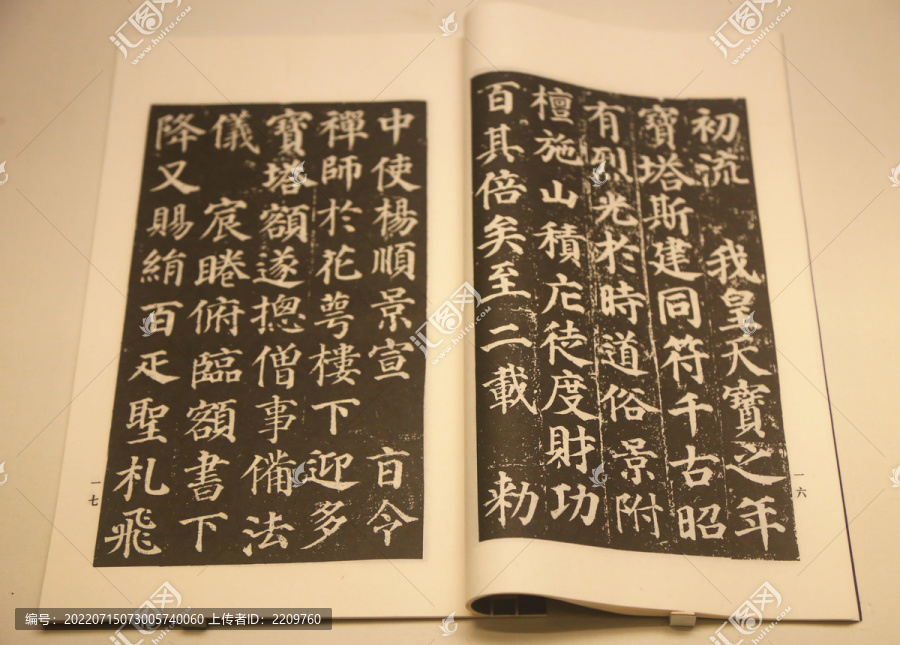 初流 我皇天寶之年
寶塔斯建同符千古昭
有烈光於時道俗景附
檀施山積庀徒度財功
百其倍矣至二載 勑
一六
中使楊順景宣 旨令
禪師於花萼樓下迎多
寶塔額遂摠僧事備法
儀 宸睠俯臨額書下
降又賜絹百疋聖札飛
一七
汇图网
编号: 20220715073005740060 上传者ID: 2209760